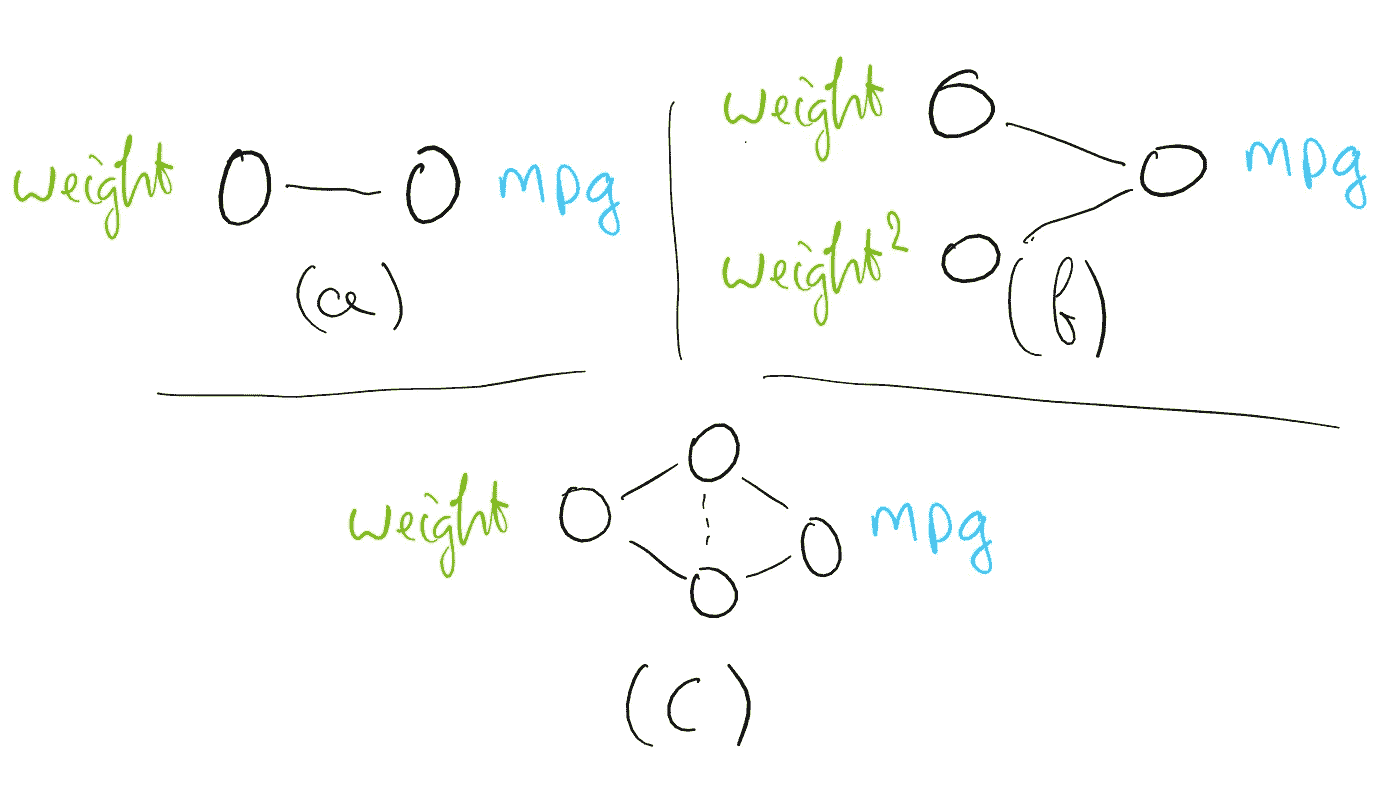 weight mpg
(a)
weight
mpg
weight²
(b)
weight mpg
(c)